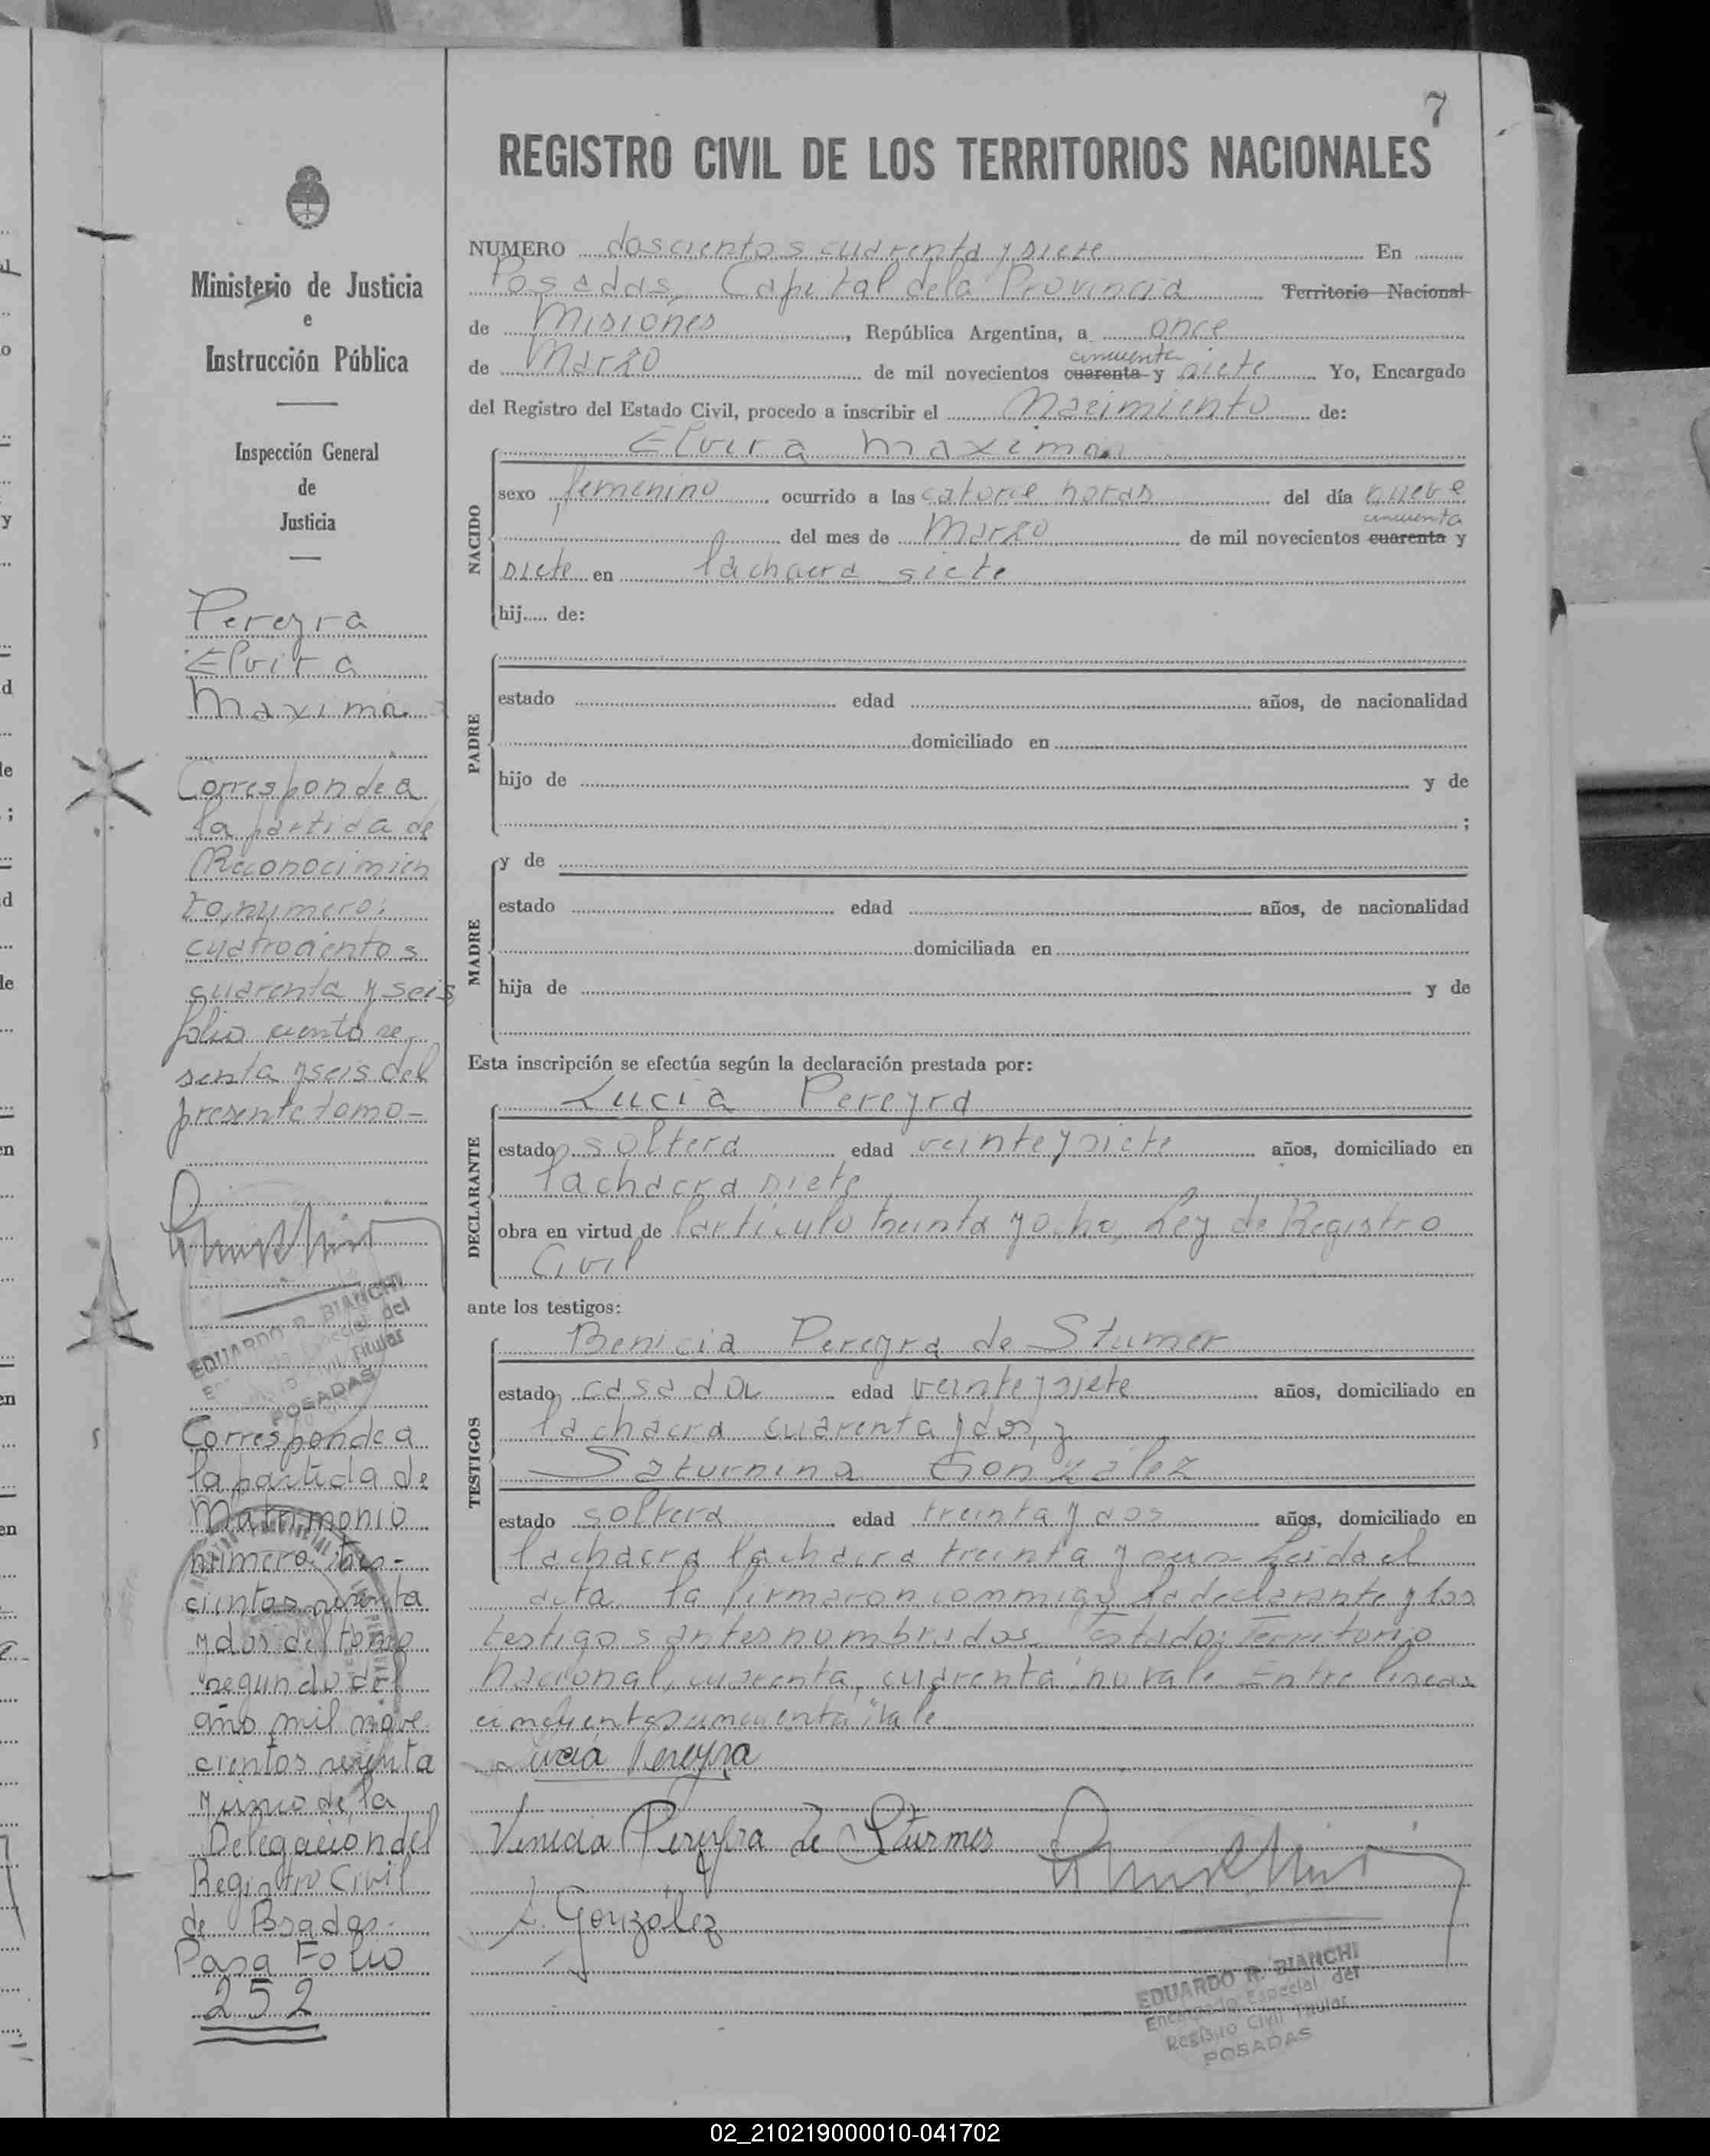 7
REGISTRO CIVIL DE LOS TERRITORIOS NACIONALES
Ministerio de Justicia
e
Instrucción Pública
Inspección General
de
Justicia
Pereyra
Elvira
Maxima
Corresponde a
la partida de
Reconocimien
to, numero:
cuatrocientos
cuarenta y seis
folio ciento se
senta y seis del
presente tomo-
EDUARDO R. BIANCHI
POSADAS
Corresponde a
la partida de
Matrimonio
numero tres-
cientos
y dos del tomo
segundo del
año mil nove
cientos
de la
Delegacion del
Registro Civil
de Posadas.
Pasa Folio
252
NUMERO doscientos cuarenta y siete En
Posadas, Capital de la Provincia Territorio Nacional
de Misiones, República Argentina, a once
cincuenta
de Marzo de mil novecientos cuarenta y siete Yo, Encargado
del Registro del Estado Civil, procedo a inscribir el Nacimiento de:
NACIDO
Elvira Maxima
sexo femenino ocurrido a las catorce horas del día nueve
cincuenta
del mes de Marzo de mil novecientos cuarenta y
siete en la chacra siete
hij..... de:
PADRE
estado edad años, de nacionalidad
domiciliado en
hijo de y de
;
MADRE
y de
estado edad años, de nacionalidad
domiciliada en
hija de y de
Esta inscripción se efectúa según la declaración prestada por:
DECLARANTE
Lucia Pereyra
estado soltera edad veinte y siete años, domiciliado en
la chacra siete
obra en virtud de l'articulo treinta y ocho, Ley de Registro
Civil
ante los testigos:
TESTIGOS
Benicia Pereyra de Stumer
estado casada edad veinte y siete años, domiciliado en
la chacra cuarenta y dos, y
Saturnina Gonzalez
estado soltera edad treinta y dos años, domiciliado en
la chacra la chacra treinta y Leida el
acta la firmaron commigo la declarante y los
testigos antes nombrados. Testado: Territorio
Nacional, cuarenta, cuarenta, no vale. Entre lineas
cincuenta, cincuenta "vale
Lucia Pereyra
Venicia Pereyra de Sturmer
S. Gonzalez
EDUARDO R. BIANCHI
Encargado Especial del
Registro Civil Titular
POSADAS
02_210219000010-041702